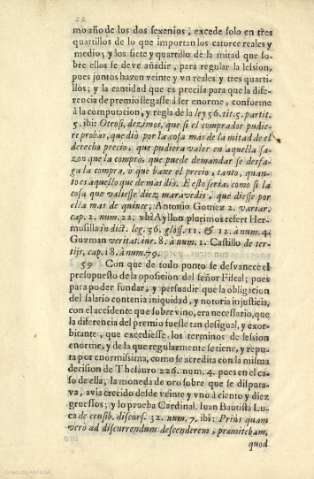 22
mo año de los dos sexenios, excede solo en tres
quartillos de lo que importan los catorce reales y
medio; y los siete y quartillo de la mitad que so-
bre ellos se deve añadir, para regular la lession,
pues juntos hazen veinte y vn reales y tres quarti-
llos; y la cantidad que es precisa para que la dife-
rencia de premio llegasse à ser enorme, conforme
à la computacion, y regla de la ley 56. tit. 5. partit.
5. ibi: Otrosi, dezimos, que si el comprador pudie-
re probar, que diò por la cosa mas de la mitad de el
derecho precio, que pudiera valer en aquella sa-
zon que la comprò, que puede demandar se desfa-
ga la compra, ò que baxe el precio, tanto, quan-
to es aquello que de mas diò. E esto seria, como si la
cosa que valiesse diez maravedis, que diesse por
ella mas de quinze; Antonio Gomez 2. variar.
cap. 2. num. 22. vbi Ayllon plurimos refert Her-
mosilla in dict. leg. 56. gloss. 11. & 12. à num. 4.
Guzman veritat. iur. 8. à num. 1. Castillo de ter-
tijs, cap. 18. à num. 79.
59 Con que de todo punto se desvanece el
presupuesto de la oposicion del señor Fiscal; pues
para poder fundar, y persuadir que la obligacion
del salario contenia iniquidad, y notoria injusticia,
con el accidente que sobrevino, era necessario, que
la diferencia del premio fuesse tan desigual, y exor-
bitante, que excediesse los terminos de lession
enorme, y de la que regularmente se tiene, y repu-
ta por enormissima, como se acredita con la misma
decision de Thesauro 226. num. 4. pues en el ca-
so de ella, la moneda de oro sobre que se disputa-
va, avia crecido desde veinte y vno à ciento y diez
gruessos; y lo prueba Cardinal. Iuan Bautista Lu-
ca de censib. discurs. 32. num. 7. ibi: Priùs quam
verò ad discurrendum descenderem, præmittebam,
quod